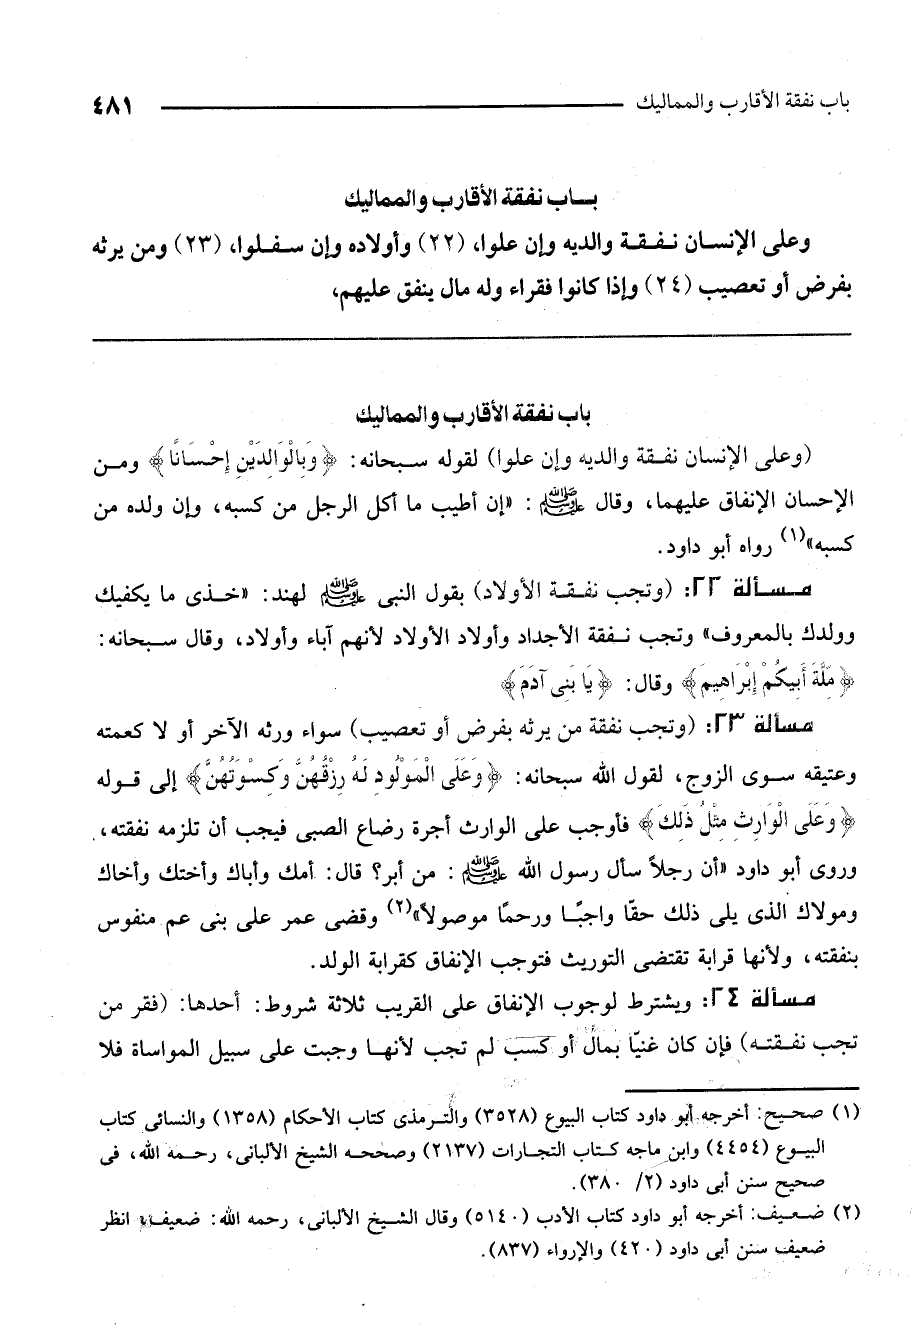 باب نفقة الأقارب والمماليك ٤٨١
بـاب نفقة الأقارب والمماليك
وعلى الإنسـان نـفـقـة والديه وإن علوا، (٢٢) وأولاده وإن سـفـلوا، (٢٣) ومن يرثه
بفرض أو تعصيب (٢٤) وإذا كانوا فقراء وله مال ينفق عليهم،
باب نفقة الأقارب والمماليك
(وعلى الإنسان نفـقة والديه وإن علوا) لقوله سـبحانه: ﴿وَبِالْوَالِدَيْنِ إِحْسَانًا﴾ ومـن
الإحسان الإنفاق عليهما، وقال ﷺ: «إن أطيب ما أكل الرجل من كسبه، وإن ولده من
كسبه»(١) رواه أبو داود.
مـسـألة ٢٢: (وتجب نفـقـة الأولاد) بقول النبى ﷺ لهند: «خـذى ما يكفيك
وولدك بالمعروف» وتجب نـفقة الأجداد وأولاد الأولاد لأنهم آباء وأولاد، وقال سـبحانه:
﴿مِّلَّةَ أَبِيكُمْ إِبْرَاهِيمَ﴾ وقال: ﴿يَا بَنِى آدَمَ﴾
مسألة ٢٣: (وتجب نفقة من يرثه بفرض أو تعصيب) سواء ورثه الآخر أو لا كعمته
وعتيقه سـوى الزوج، لقول الله سبحانه: ﴿وَعَلَى الْمَوْلُودِ لَهُ رِزْقُهُنَّ وَكِسْوَتُهُنَّ﴾ إلى قـوله
﴿وَعَلَى الْوَارِثِ مِثْلُ ذَلِكَ﴾ فأوجب على الوارث أجرة رضاع الصبى فيجب أن تلزمه نفقته،
وروى أبو داود «أن رجلاً سأل رسول الله ﷺ: من أبر؟ قال: أمك وأباك وأختك وأخاك
ومولاك الذى يلى ذلك حقًا واجبًـا ورحمًا موصولاً»(٢) وقضى عمر على بنى عم منفوس
بنفقته، ولأنها قرابة تقتضى التوريث فتوجب الإنفاق كقرابة الولد.
مسألة ٢٤: ويشترط لوجوب الإنفاق على القريب ثلاثة شروط: أحدها: (فقر من
تجب نفـقتـه) فإن كان غنيًا بمال أو كسب لم تجب لأنهـا وجبت على سبيل المواساة فلا
(١) صحيح: أخرجه أبو داود كتاب البيوع (٣٥٢٨) والتـرمذى كتاب الأحكام (١٣٥٨) والنسائى كتاب
البيـوع (٤٤٥٤) وابن ماجه كـتاب التجارات (٢١٣٧) وصححـه الشيخ الألبانى، رحـمه الله، فى
صحيح سنن أبى داود (٢/ ٣٨٠).
(٢) ضـعـيف: أخرجه أبو داود كتاب الأدب (٥١٤٠) وقال الشـيخ الألبانى، رحمه الله: ضعيف، انظر
ضعيف سنن أبى داود (٤٢٠) والإرواء (٨٣٧).